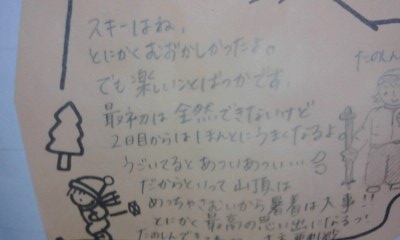 スキーはね、
とにかくむずかしかったよ。
でも楽しいことばっかです。
最初は全然できないけど
2日目からはほんとにうまくなるよ。
うごいてるとあついあつい…
だからといって山頂は
めっちゃさむいから暑着は大事!!
とにかく最高の思い出になるっ!
たのしんで
たのしん